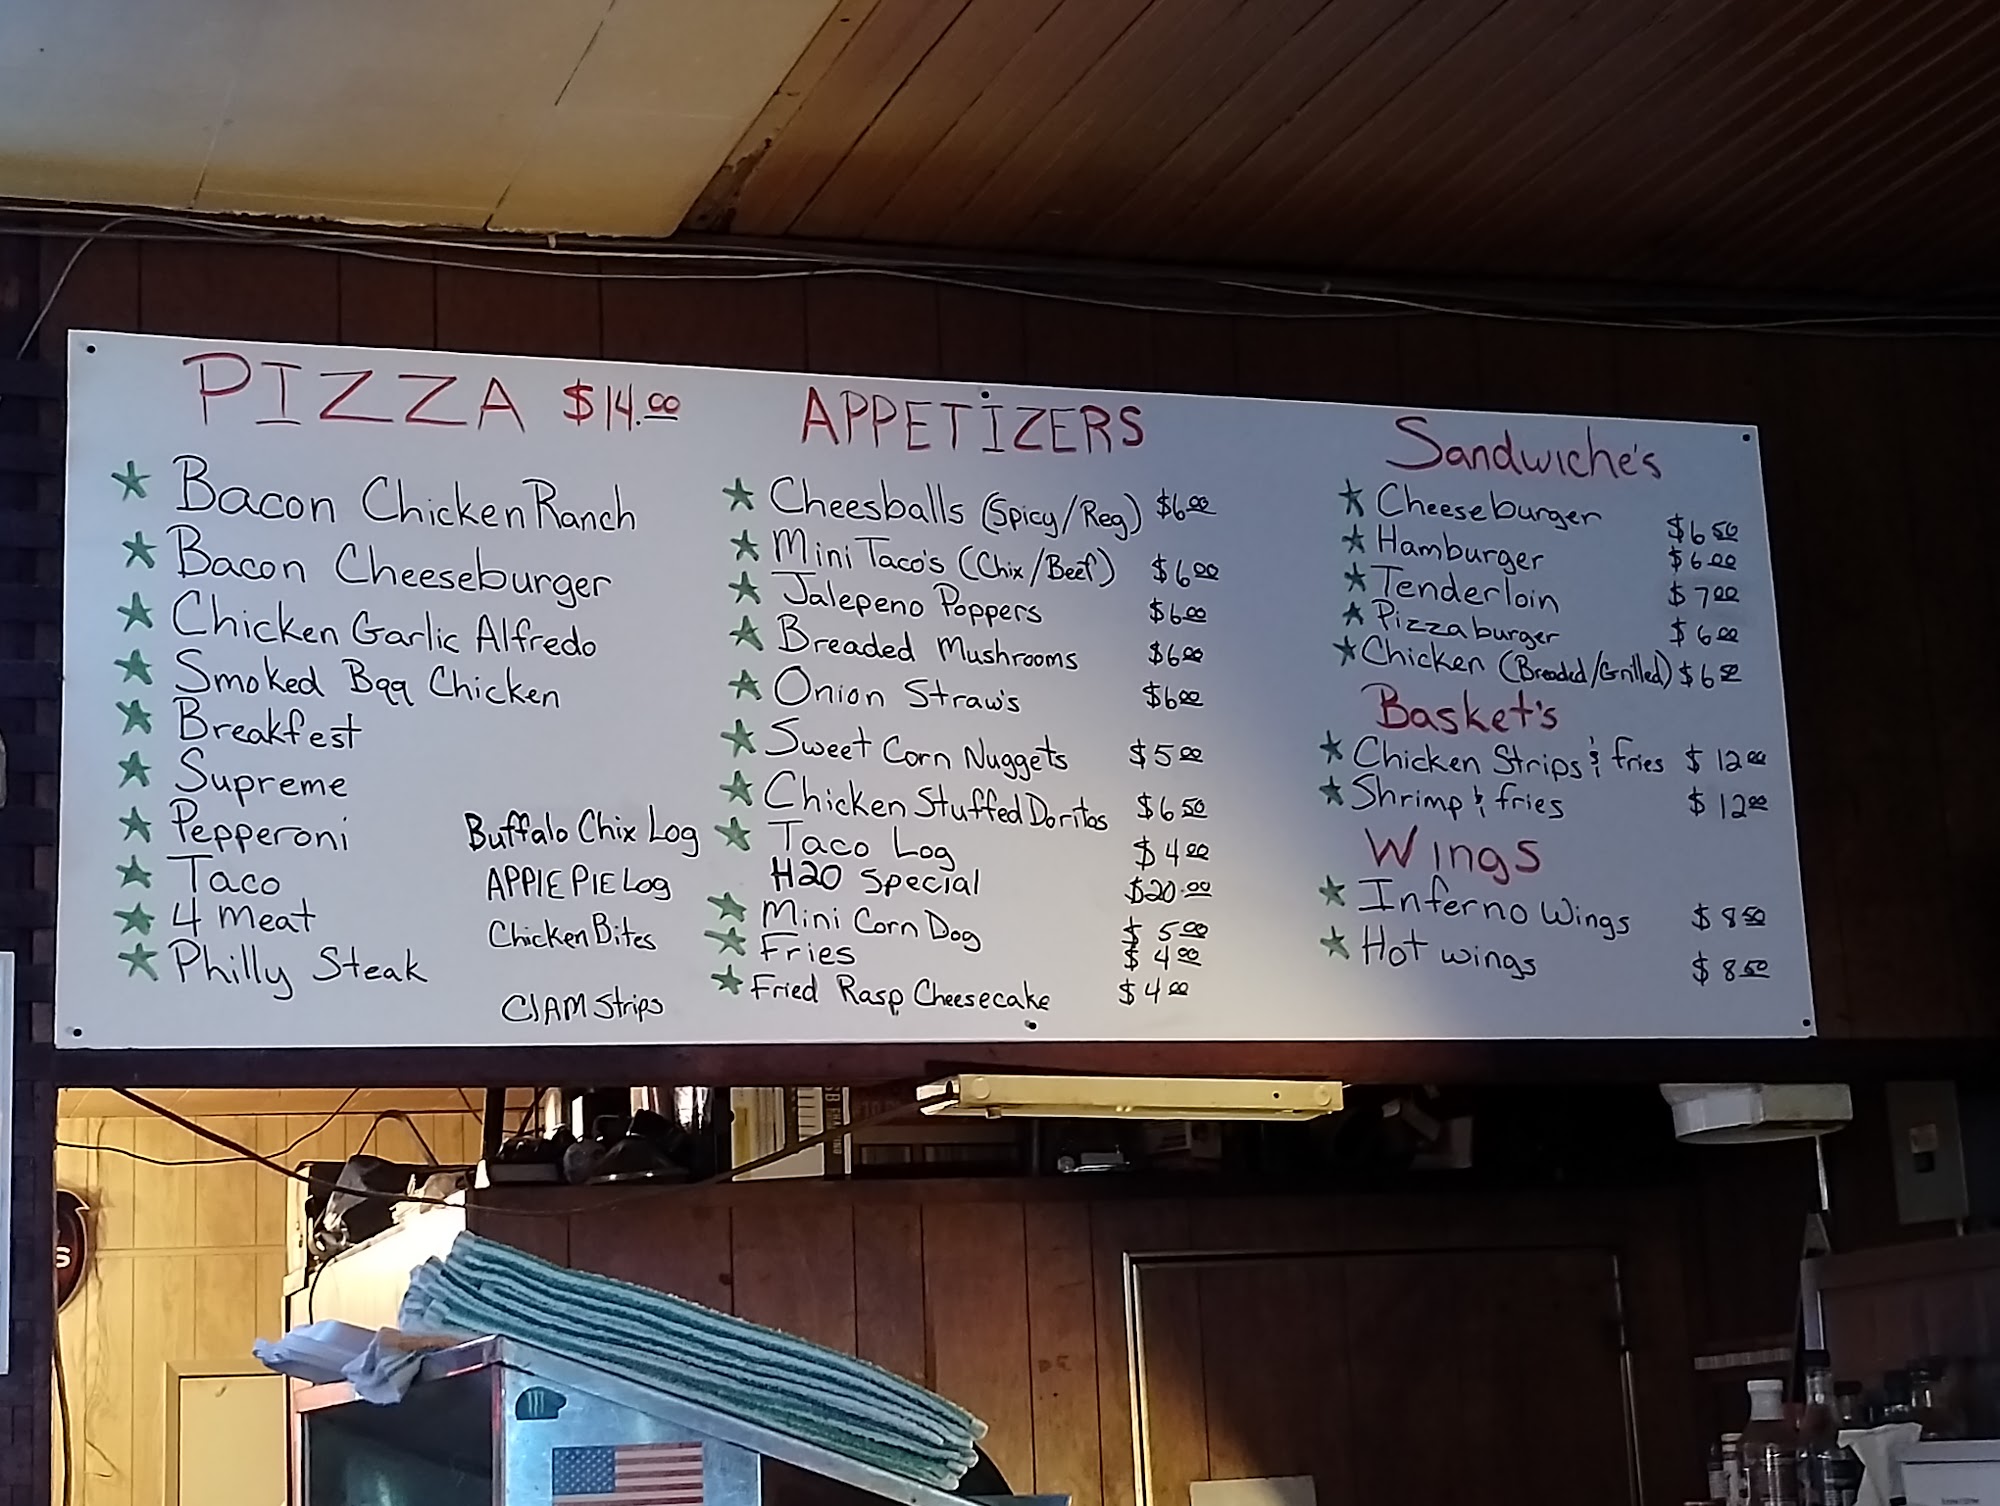 PIZZA $14.00
★ Bacon Chicken Ranch
★ Bacon Cheeseburger
★ Chicken Garlic Alfredo
★ Smoked Bqq Chicken
★ Breakfest
★ Supreme
★ Pepperoni
★ Taco
★ 4 meat
★ Philly Steak
Buffalo Chix Log
APPlE PIE Log
Chicken Bites
ClAM Strips
APPETIZERS
★ Cheesballs (Spicy/Reg) $6.00
★ Mini Taco's (Chix/Beef) $6.00
★ Jalepeno Poppers $6.00
★ Breaded Mushrooms $6.00
★ Onion Straw's $6.00
★ Sweet Corn Nuggets $5.00
★ Chicken Stuffed Doritos $6.50
★ Taco Log $4.00
H20 Special $20.00
★ Mini Corn Dog $5.00
★ Fries $4.00
★ Fried Rasp Cheesecake $4.00
Sandwiche's
★ Cheeseburger $6.50
★ Hamburger $6.00
★ Tenderloin $7.00
★ Pizzaburger $6.00
★ Chicken (Breaded/Grilled) $6.50
Basket's
★ Chicken Strips & fries $12.00
★ Shrimp & fries $12.00
Wings
★ Inferno Wings $8.50
★ Hot wings $8.50